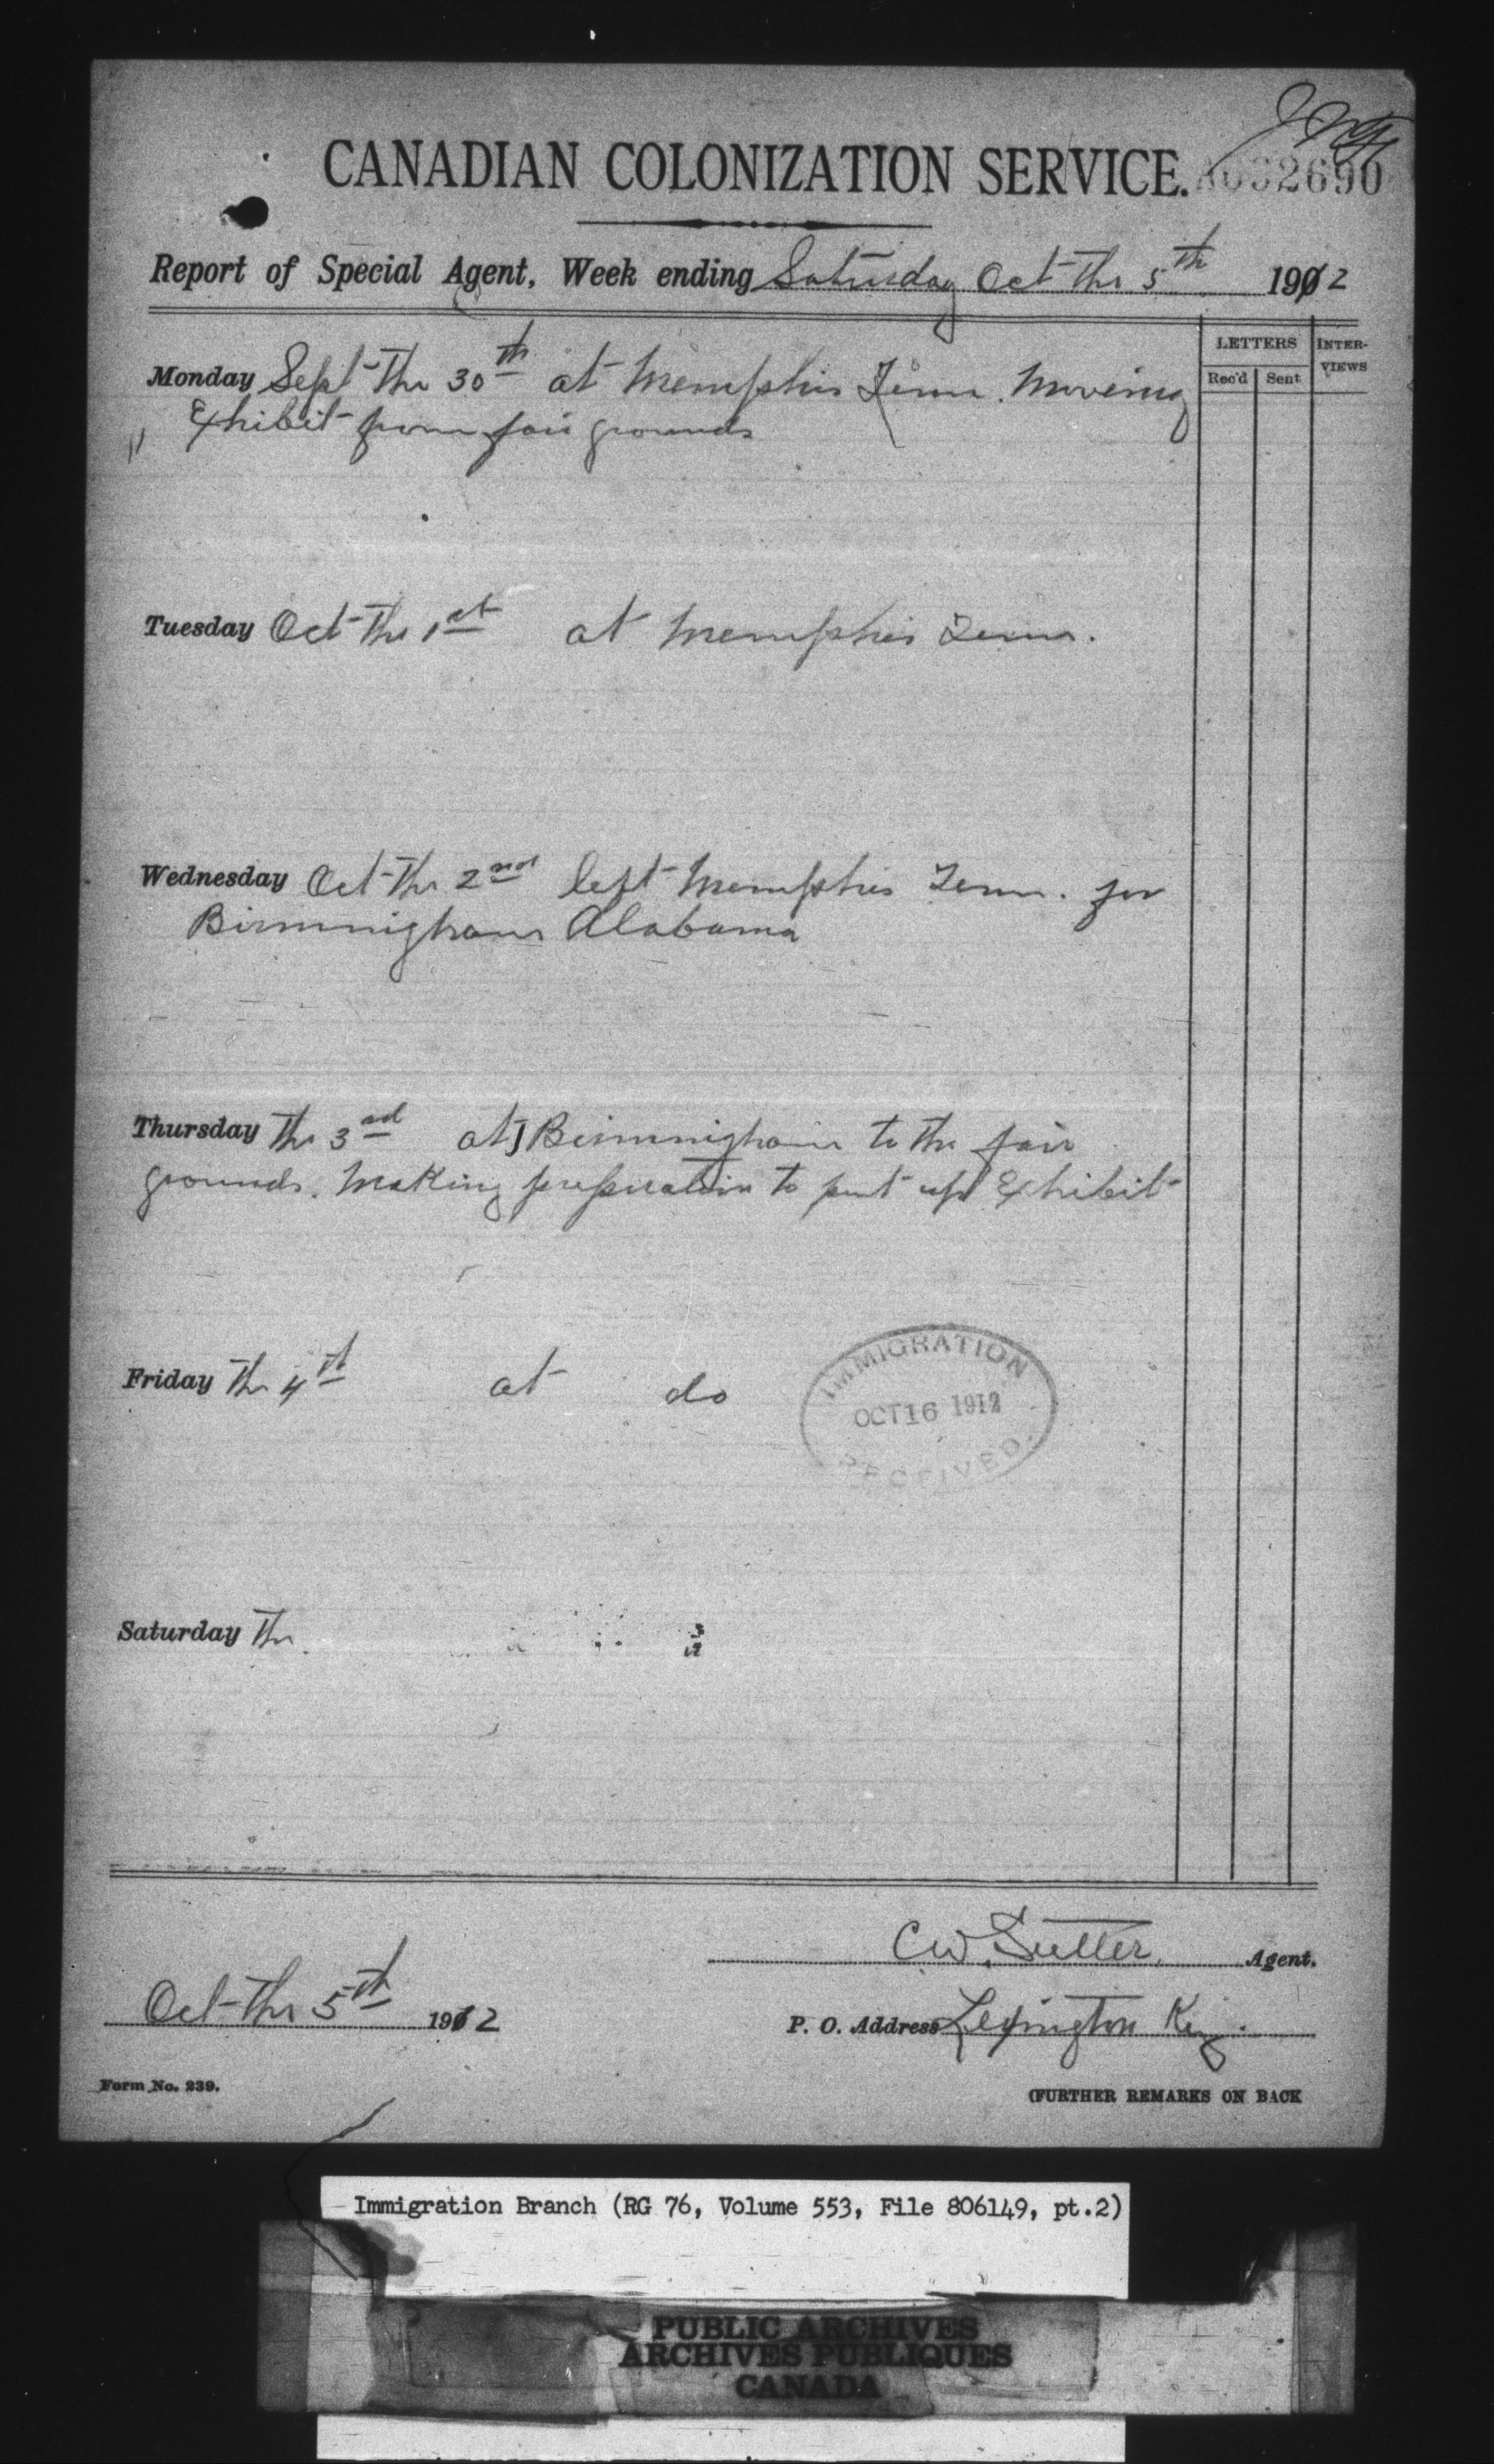 CANADIAN COLONIZATION SERVICE.
2690
Report of Special Agent, Week ending Saturday Oct the 5th 1912
LETTERS INTER-VIEWS
Rec'd Sent
Monday Sept the 30th at Memphis Tenn. Moving
Exhibit from fair grounds
Tuesday Oct the 1st at Memphis Tenn.
Wednesday Oct the 2nd left Memphis Tenn. for
Birmingham Alabama
Thursday the 3rd at Birmingham to the fair
grounds. Making preparation to put up Exhibit
Friday the 4th at do
IMMIGRATION
OCT 16 1912
RECEIVED.
Saturday the
C W. Sutter, Agent.
Oct the 5th 1912
P. O. Address Lexington Ky.
Form No. 239.
(FURTHER REMARKS ON BACK
Immigration Branch (RG 76, Volume 553, File 806149, pt.2)
PUBLIC ARCHIVES
ARCHIVES PUBLIQUES
CANADA